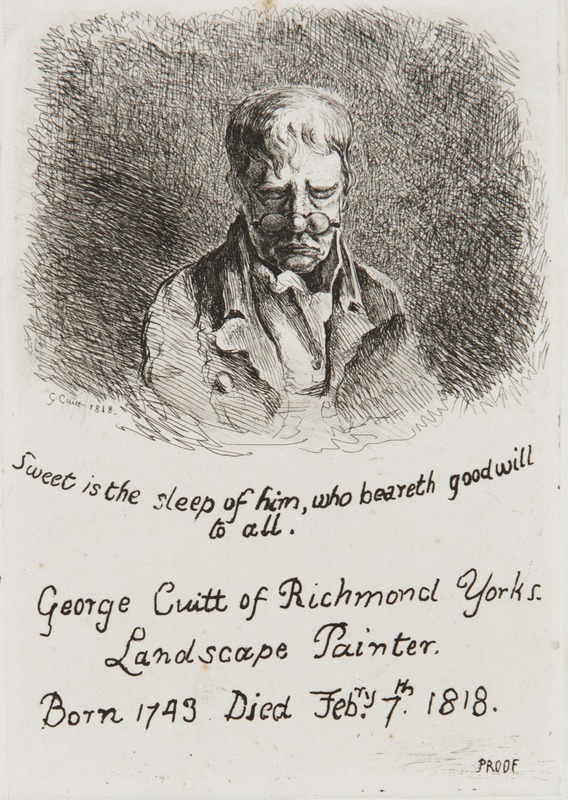 G Cuitt 1818.
Sweet is the sleep of him, who beareth goodwill
to all.
George Cuitt of Richmond Yorks.
Landscape Painter.
Born 1743 Died Feb.ry 7.th 1818.
PROOF